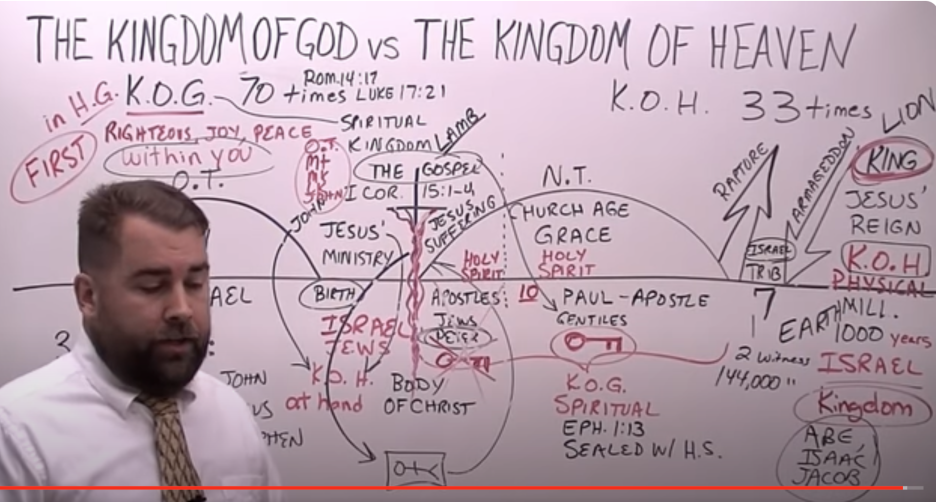 THE KINGDOM OF GOD vs THE KINGDOM OF HEAVEN
in H.G. K.O.G. 70 times
Rom. 14:17
LUKE 17:21
SPIRITUAL
KINGDOM LAMB
FIRST
RIGHTEOUS, JOY, PEACE
within you
O.T.
O.T.
Mt
MK
LK
JOHN
THE GOSPEL
I COR. 15:1-4
JOHN
JESUS'
MINISTRY
JESUS
SUFFERING
HOLY
SPIRIT
N.T.
CHURCH AGE
GRACE
HOLY
SPIRIT
K.O.H. 33 times
RAPTURE
ARMAGEDDON
LION
KING
JESUS'
REIGN
K.O.H
PHYSICAL
ISRAEL
TRIB
7
EARTH
MILL.
1000 years
ISRAEL
2 witness
144,000 "
Kingdom
ABE,
ISAAC,
JACOB
AEL
BIRTH
ISRAEL
JEWS
K.O.H.
at hand
JOHN
US
PHEN
APOSTLES:
JEWS
PETER
BODY
OF CHRIST
10
PAUL - APOSTLE
GENTILES
K.O.G.
SPIRITUAL
EPH. 1:13
SEALED W/ H.S.